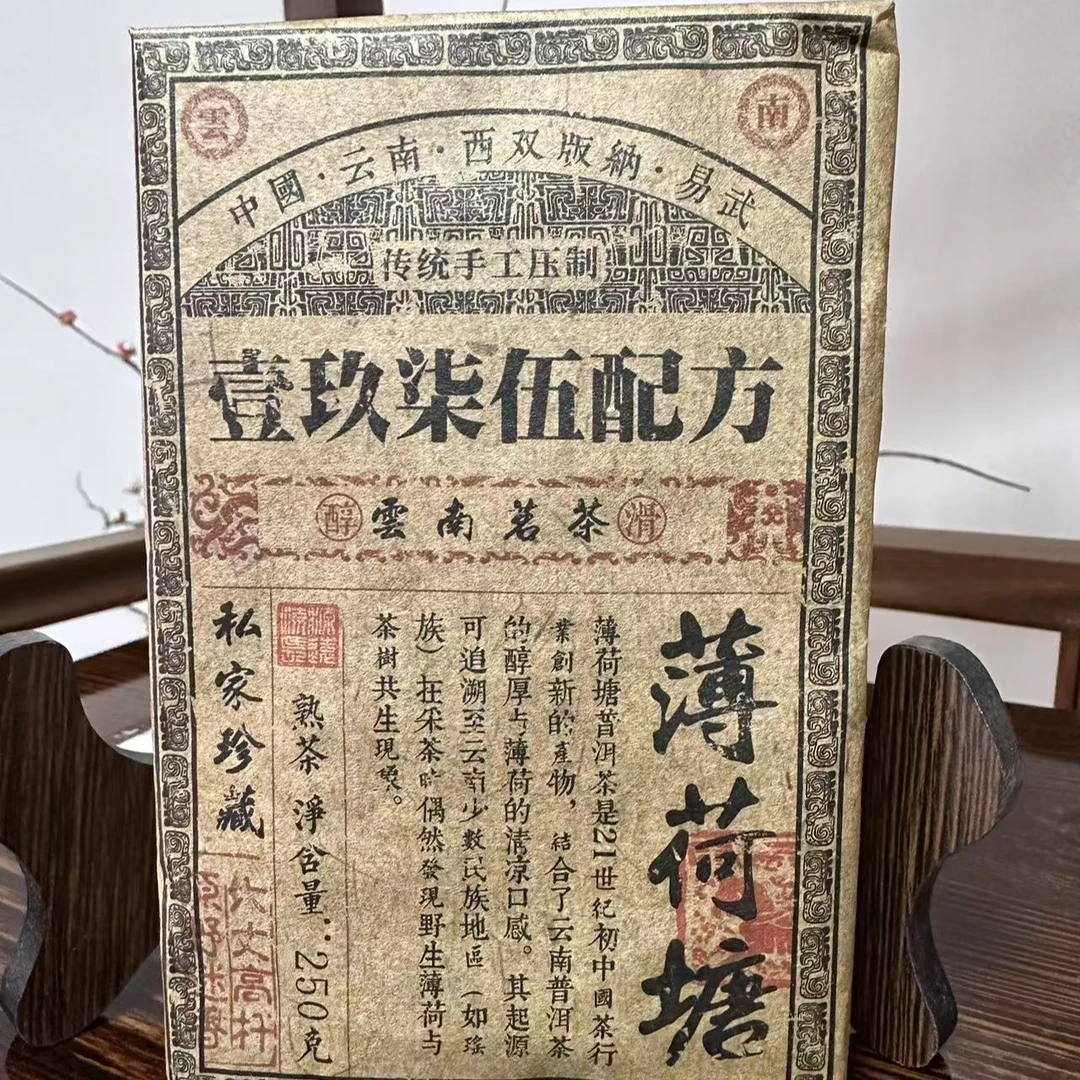 雲
南
中國·云南·西双版納·易武
传统手工压制
壹玖柒伍配方
醇 雲南茗茶 滑
薄荷塘
薄荷塘普洱茶是21世紀初中國茶行
業創新的產物，結合了云南普洱茶
的醇厚与薄荷的清凉口感。其起源
可追溯至云南少數民族地區（如瑤
族）在采茶时偶然發現野生薄荷与
茶樹共生現象。
熟茶 淨含量：250克
私家珍藏